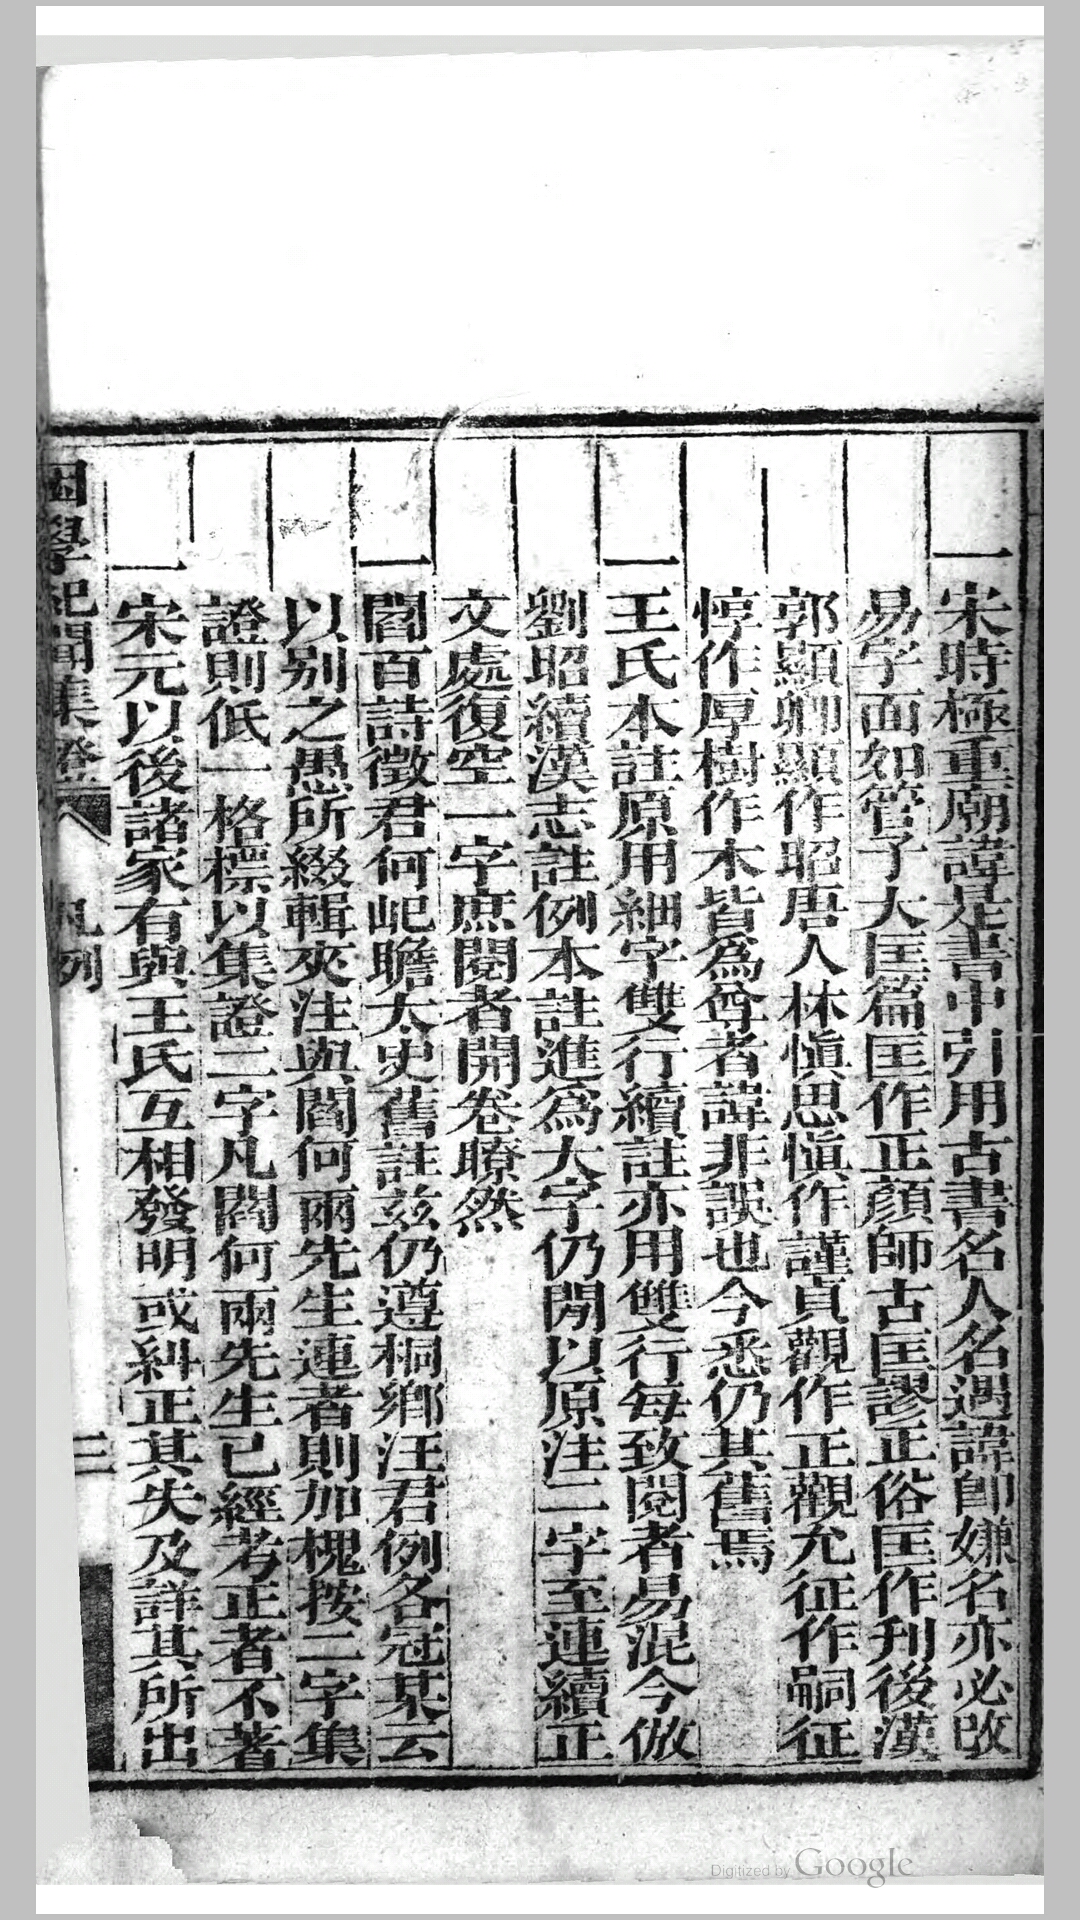 一宋時極重廟諱是書中引用古書名人名遇諱卽嫌名亦必改
易字面如管子大匡篇匡作正顏師古匡謬正俗匡作刋後漢
郭顯卿顯作昭唐人林愼思愼作謹貞觀作正觀允征作嗣征
惇作厚樹作木皆爲尊者諱非誤也今悉仍其舊焉
一王氏本註原用細字雙行續註亦用雙行每致閱者易混今倣
劉昭續漢志註例本註進爲大字仍閒以原注二字至連續正
文處復空一字庶閱者開卷瞭然
一閻百詩徵君何屺瞻太史舊註兹仍遵桐鄉汪君例各冠某云
以別之愚所綴輯夾注與閻何兩先生連者則加槐按二字集
證則低一格標以集證二字凡閻何兩先生已經考正者不著
一宋元以後諸家有與王氏互相發明或糾正其失及詳其所出
困學紀聞集證 凡例 三
Digitized by Google